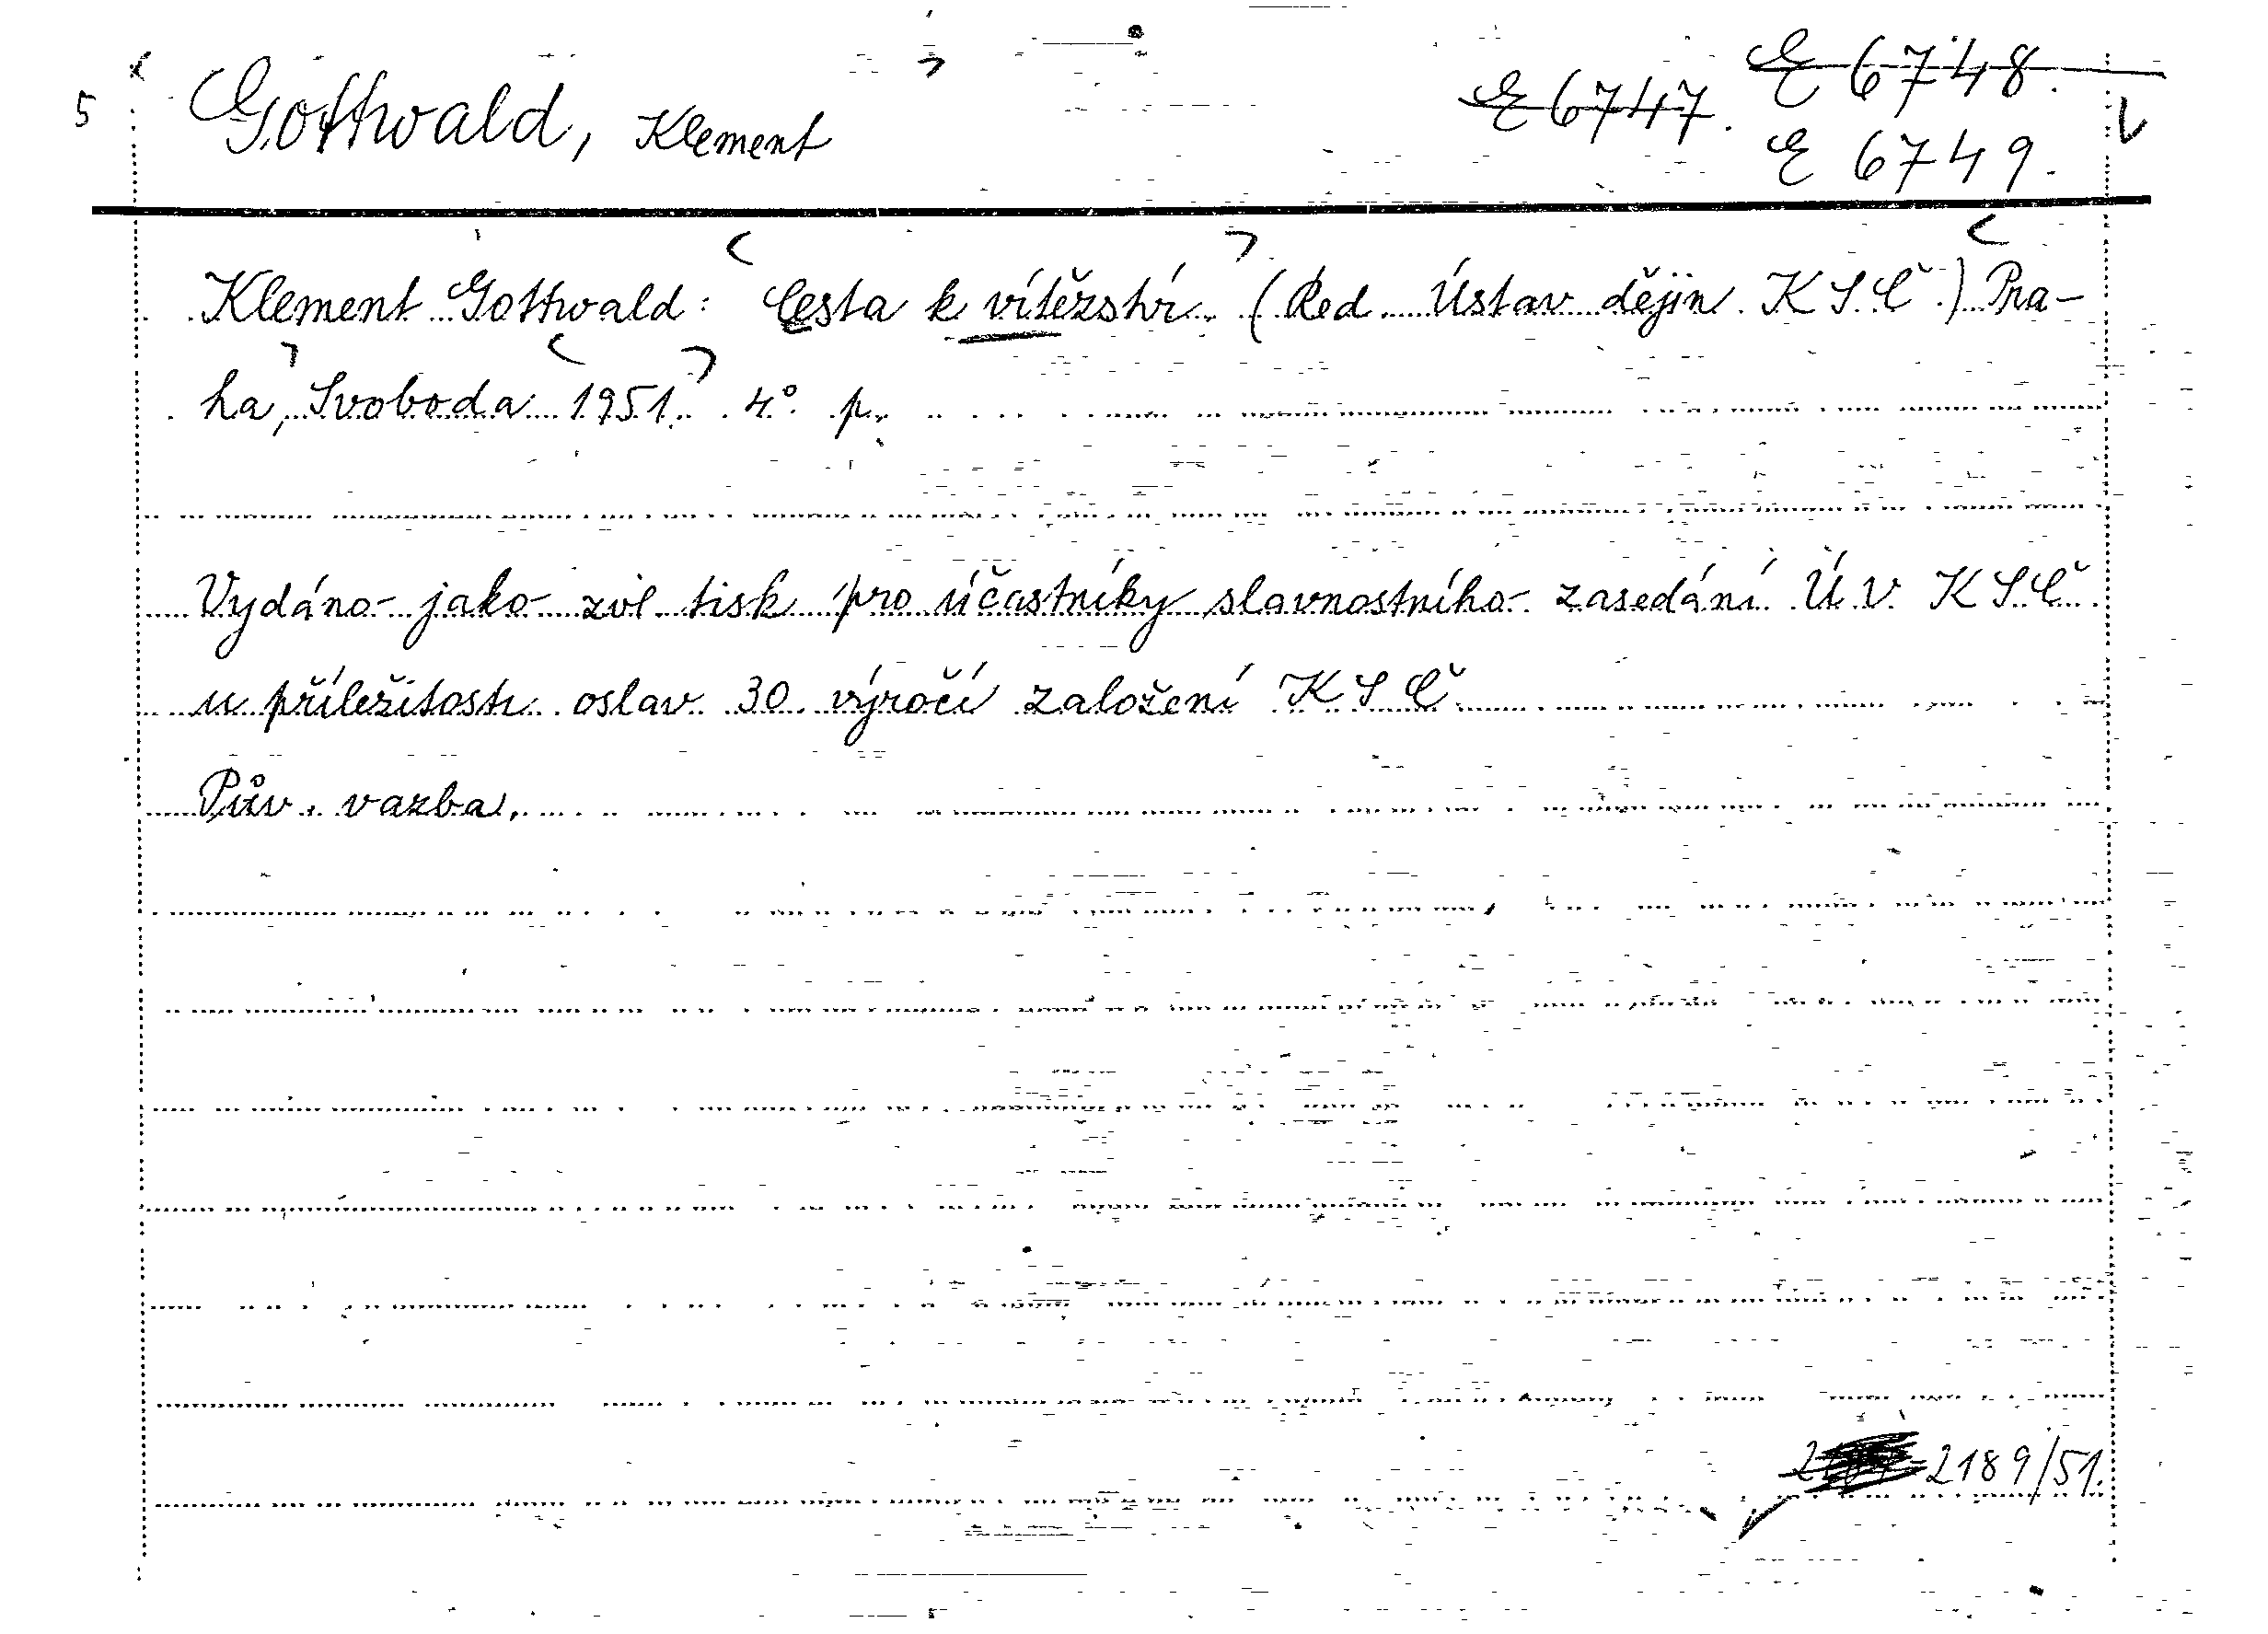 E 6748.
5 Gottwald, Klement E 6747.
E 6749.
Klement Gottwald: Cesta k vítězství (Red Ústav dějin KSČ) Pra-
ha, Svoboda 1951. 4° p.
Vydáno jako zvl tisk pro účastníky slavnostního zasedání ÚV KSČ
u příležitosti oslav 30. výročí založení KSČ
Pův. vazba.
2189/51.